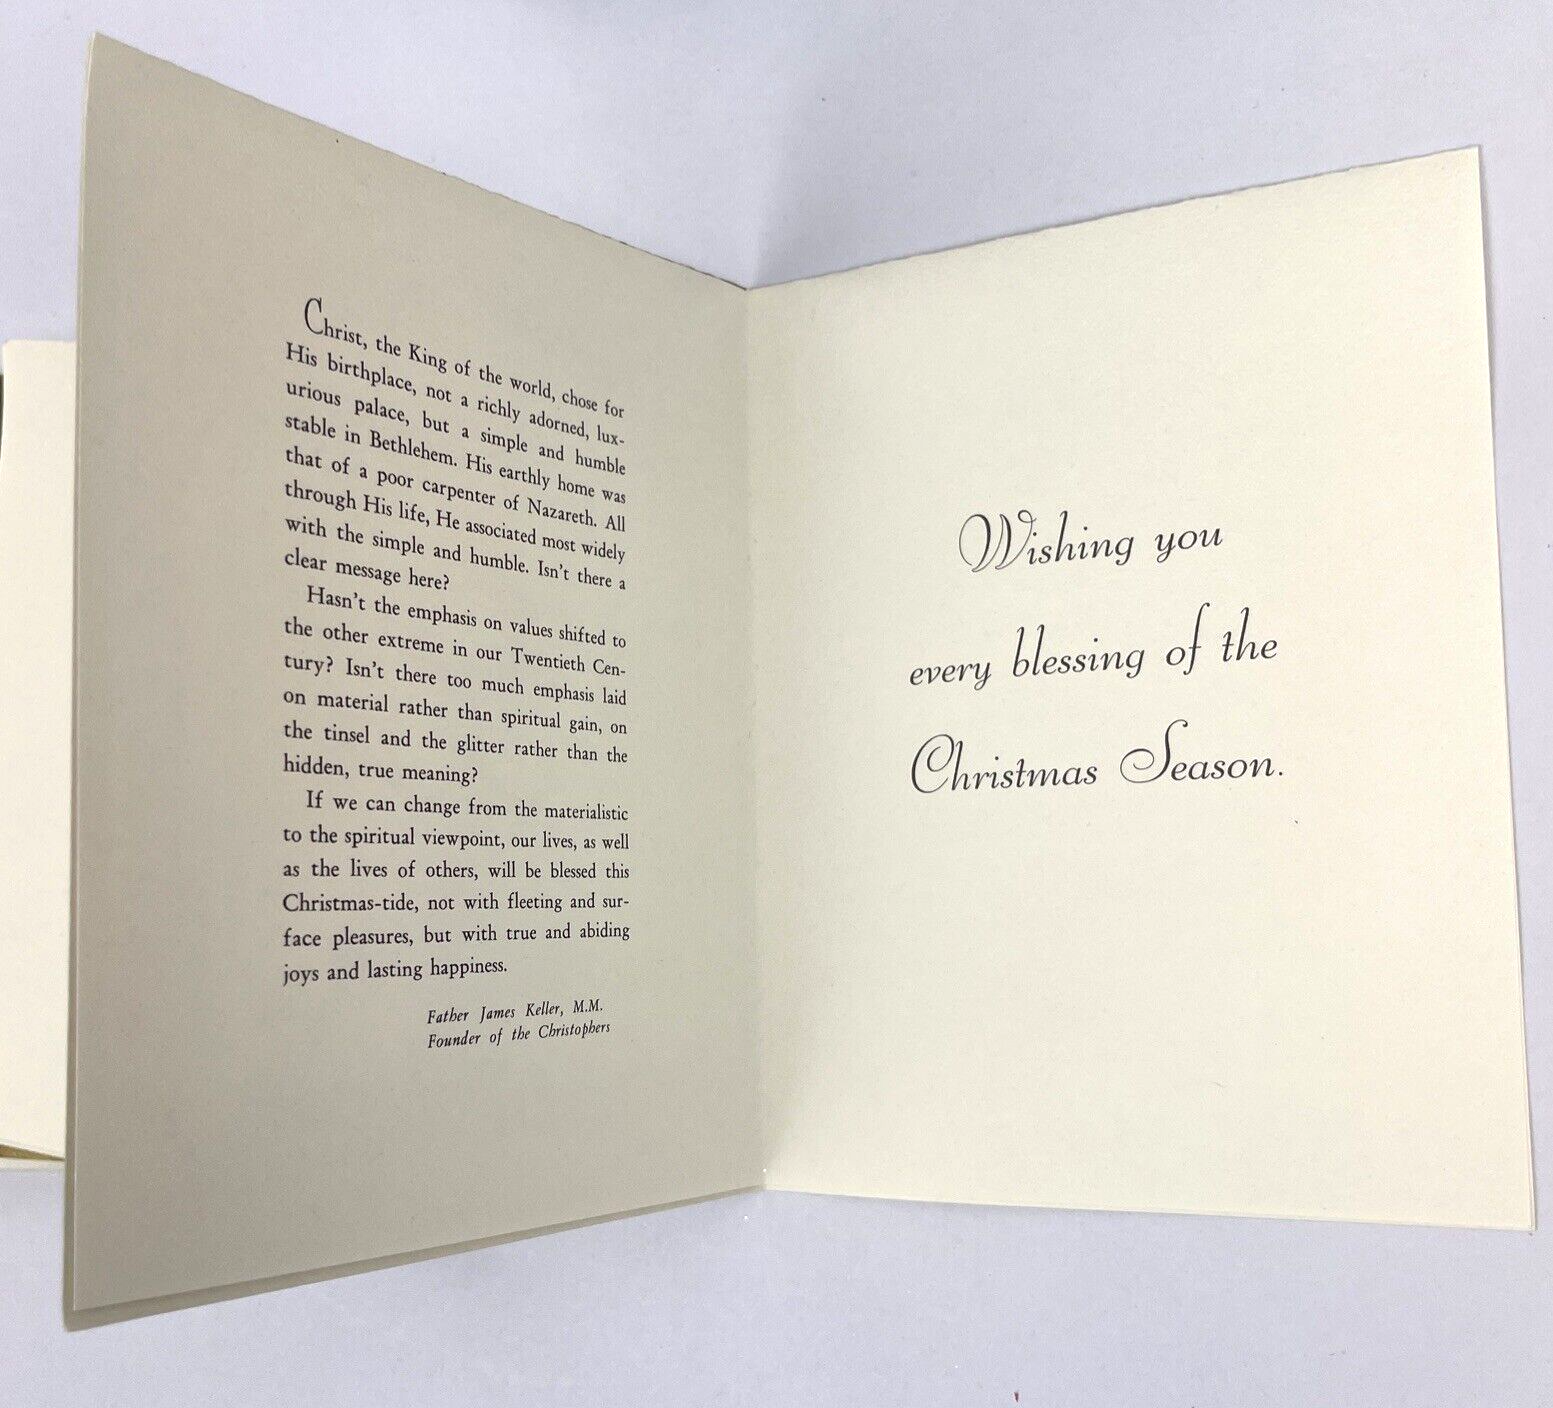 Christ, the King of the world, chose for
His birthplace, not a richly adorned, lux-
urious palace, but a simple and humble
stable in Bethlehem. His earthly home was
that of a poor carpenter of Nazareth. All
through His life, He associated most widely
with the simple and humble. Isn't there a
clear message here?
Hasn't the emphasis on values shifted to
the other extreme in our Twentieth Cen-
tury? Isn't there too much emphasis laid
on material rather than spiritual gain, on
the tinsel and the glitter rather than the
hidden, true meaning?
If we can change from the materialistic
to the spiritual viewpoint, our lives, as well
as the lives of others, will be blessed this
Christmas-tide, not with fleeting and sur-
face pleasures, but with true and abiding
joys and lasting happiness.
Father James Keller, M.M.
Founder of the Christophers
Wishing you
every blessing of the
Christmas Season.